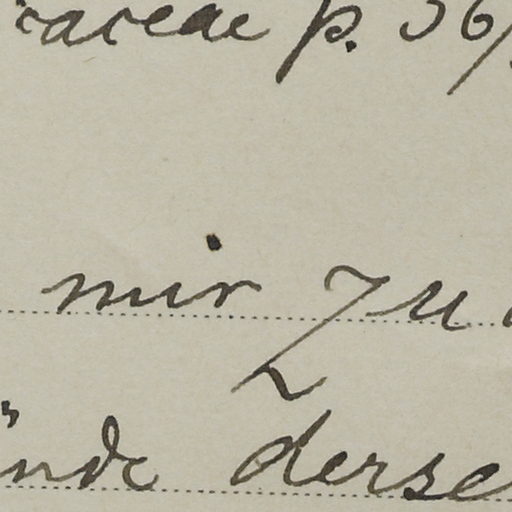 raceae p. 36
mir zu
ünde derse